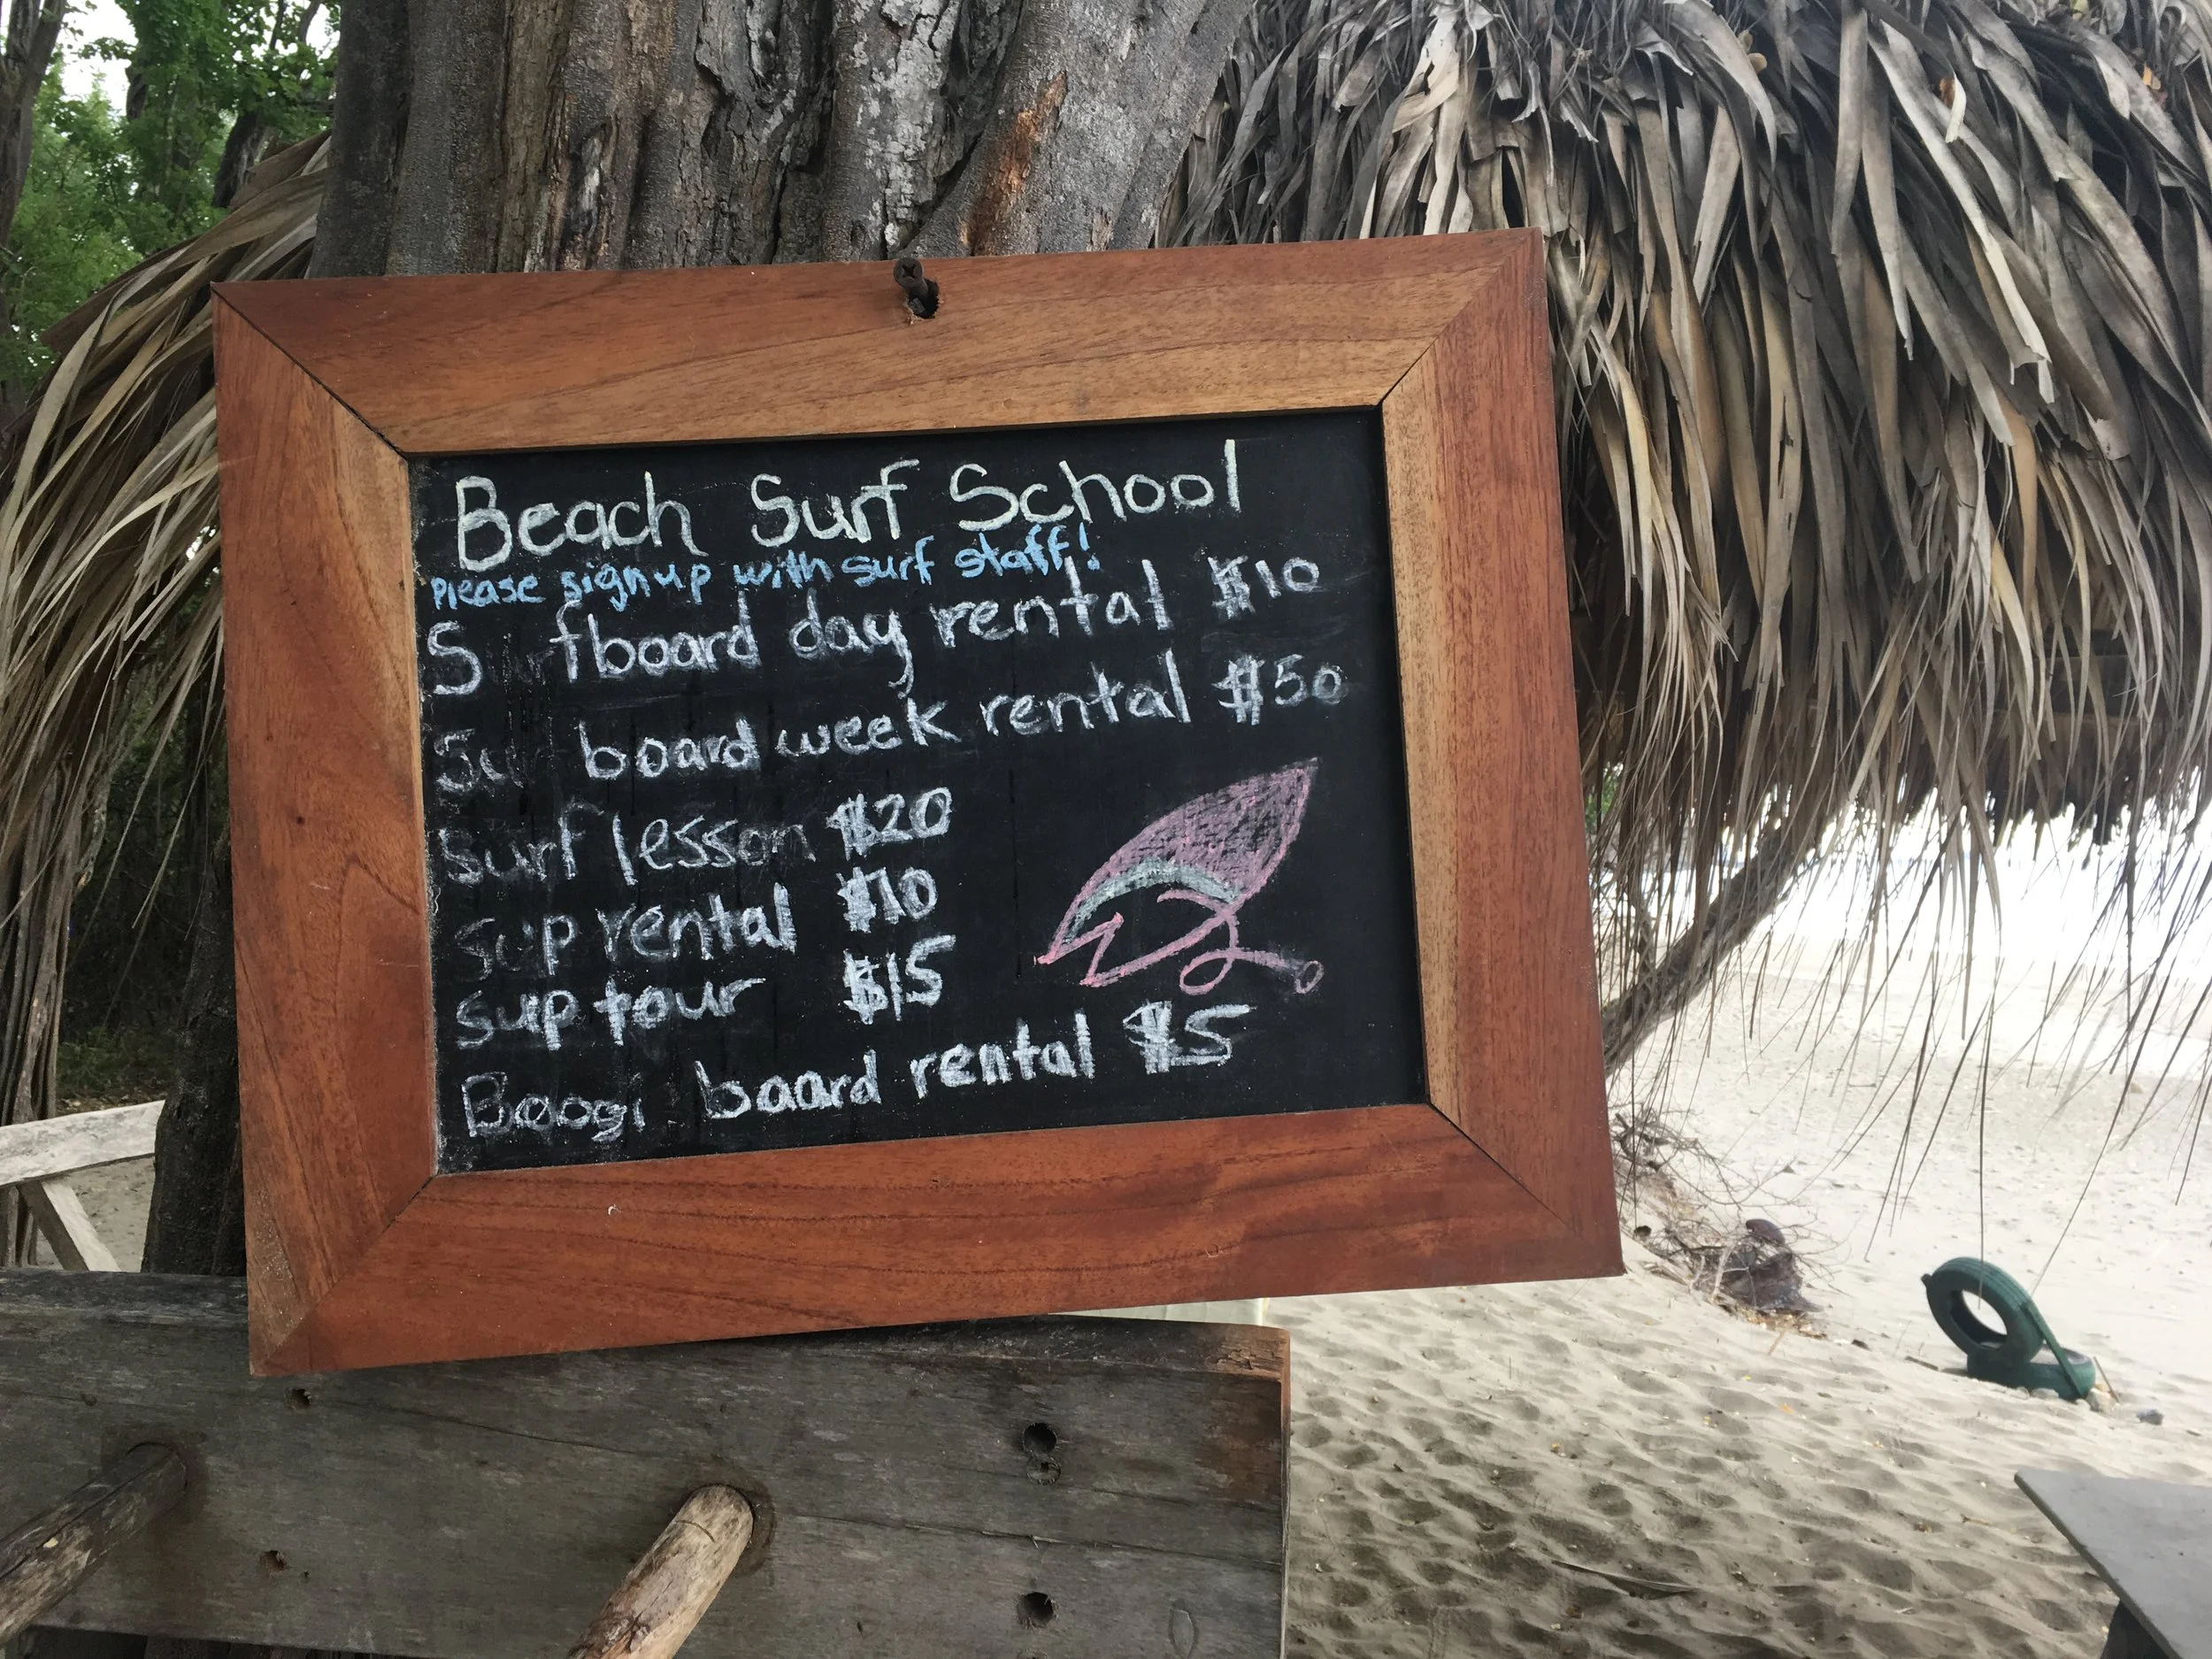 Beach Surf School
Please sign up with surf staff!
Surfboard day rental $10
Surfboard week rental $50
Surf lesson $20
Sup rental $10
Sup tour $15
Boogi board rental $5